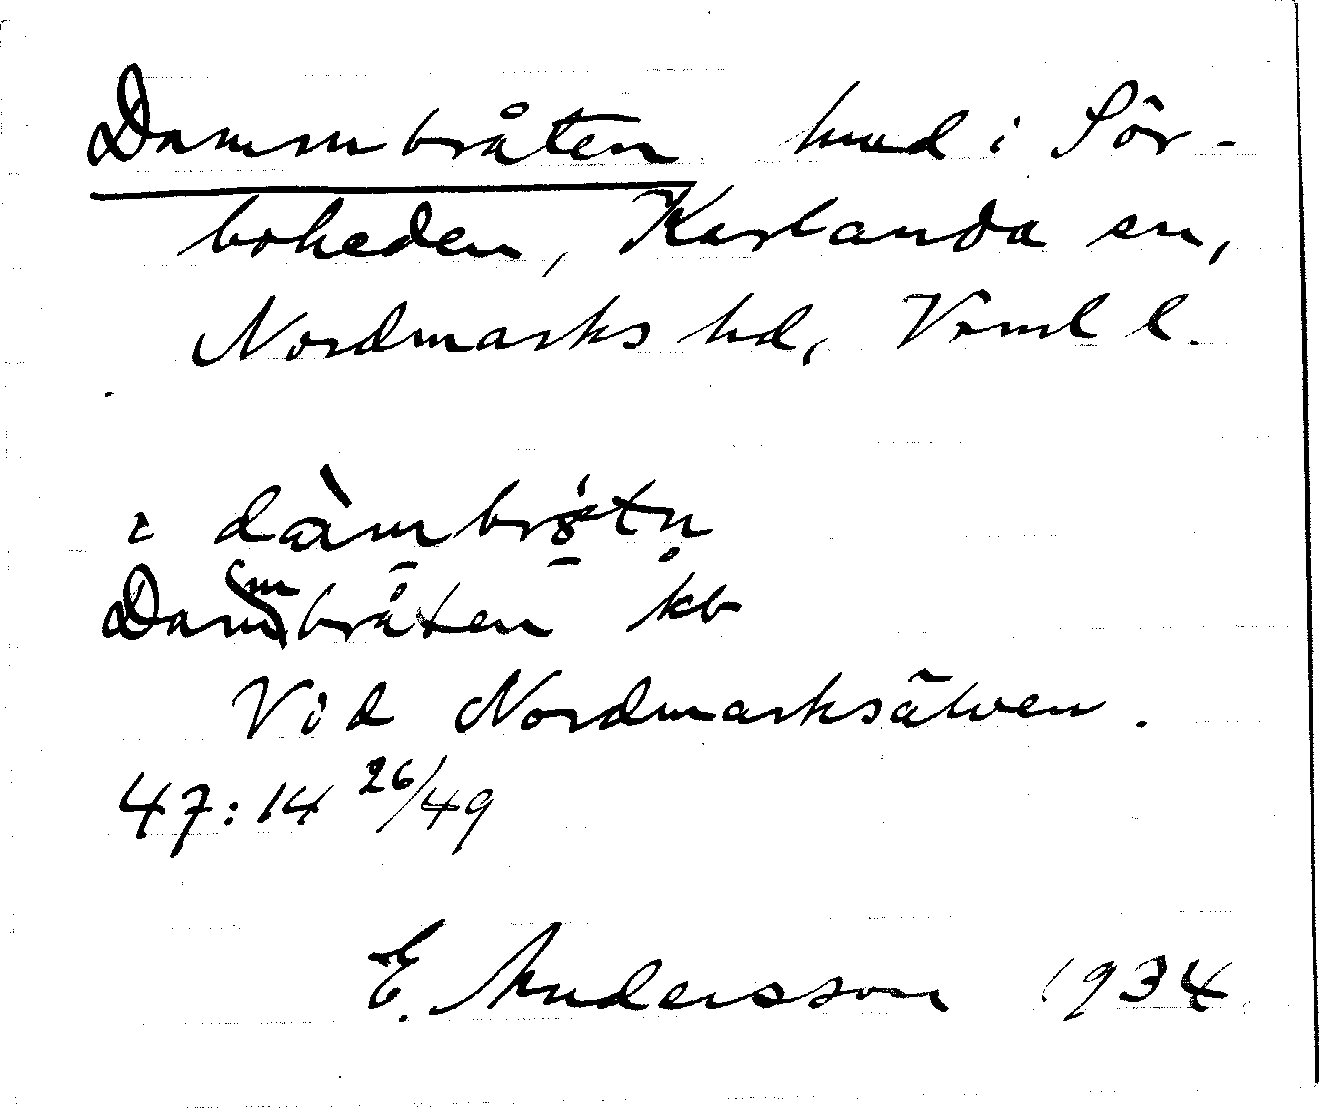 Dammbråten hmd i Sör-
boheden, Karlanda sn,
Nordmarks hd, Vrml l.
i dàmbrǫ́tn̥
Dammbråten kb
Vid Nordmarksälven.
47:14 26/49
E. Andersson 1934